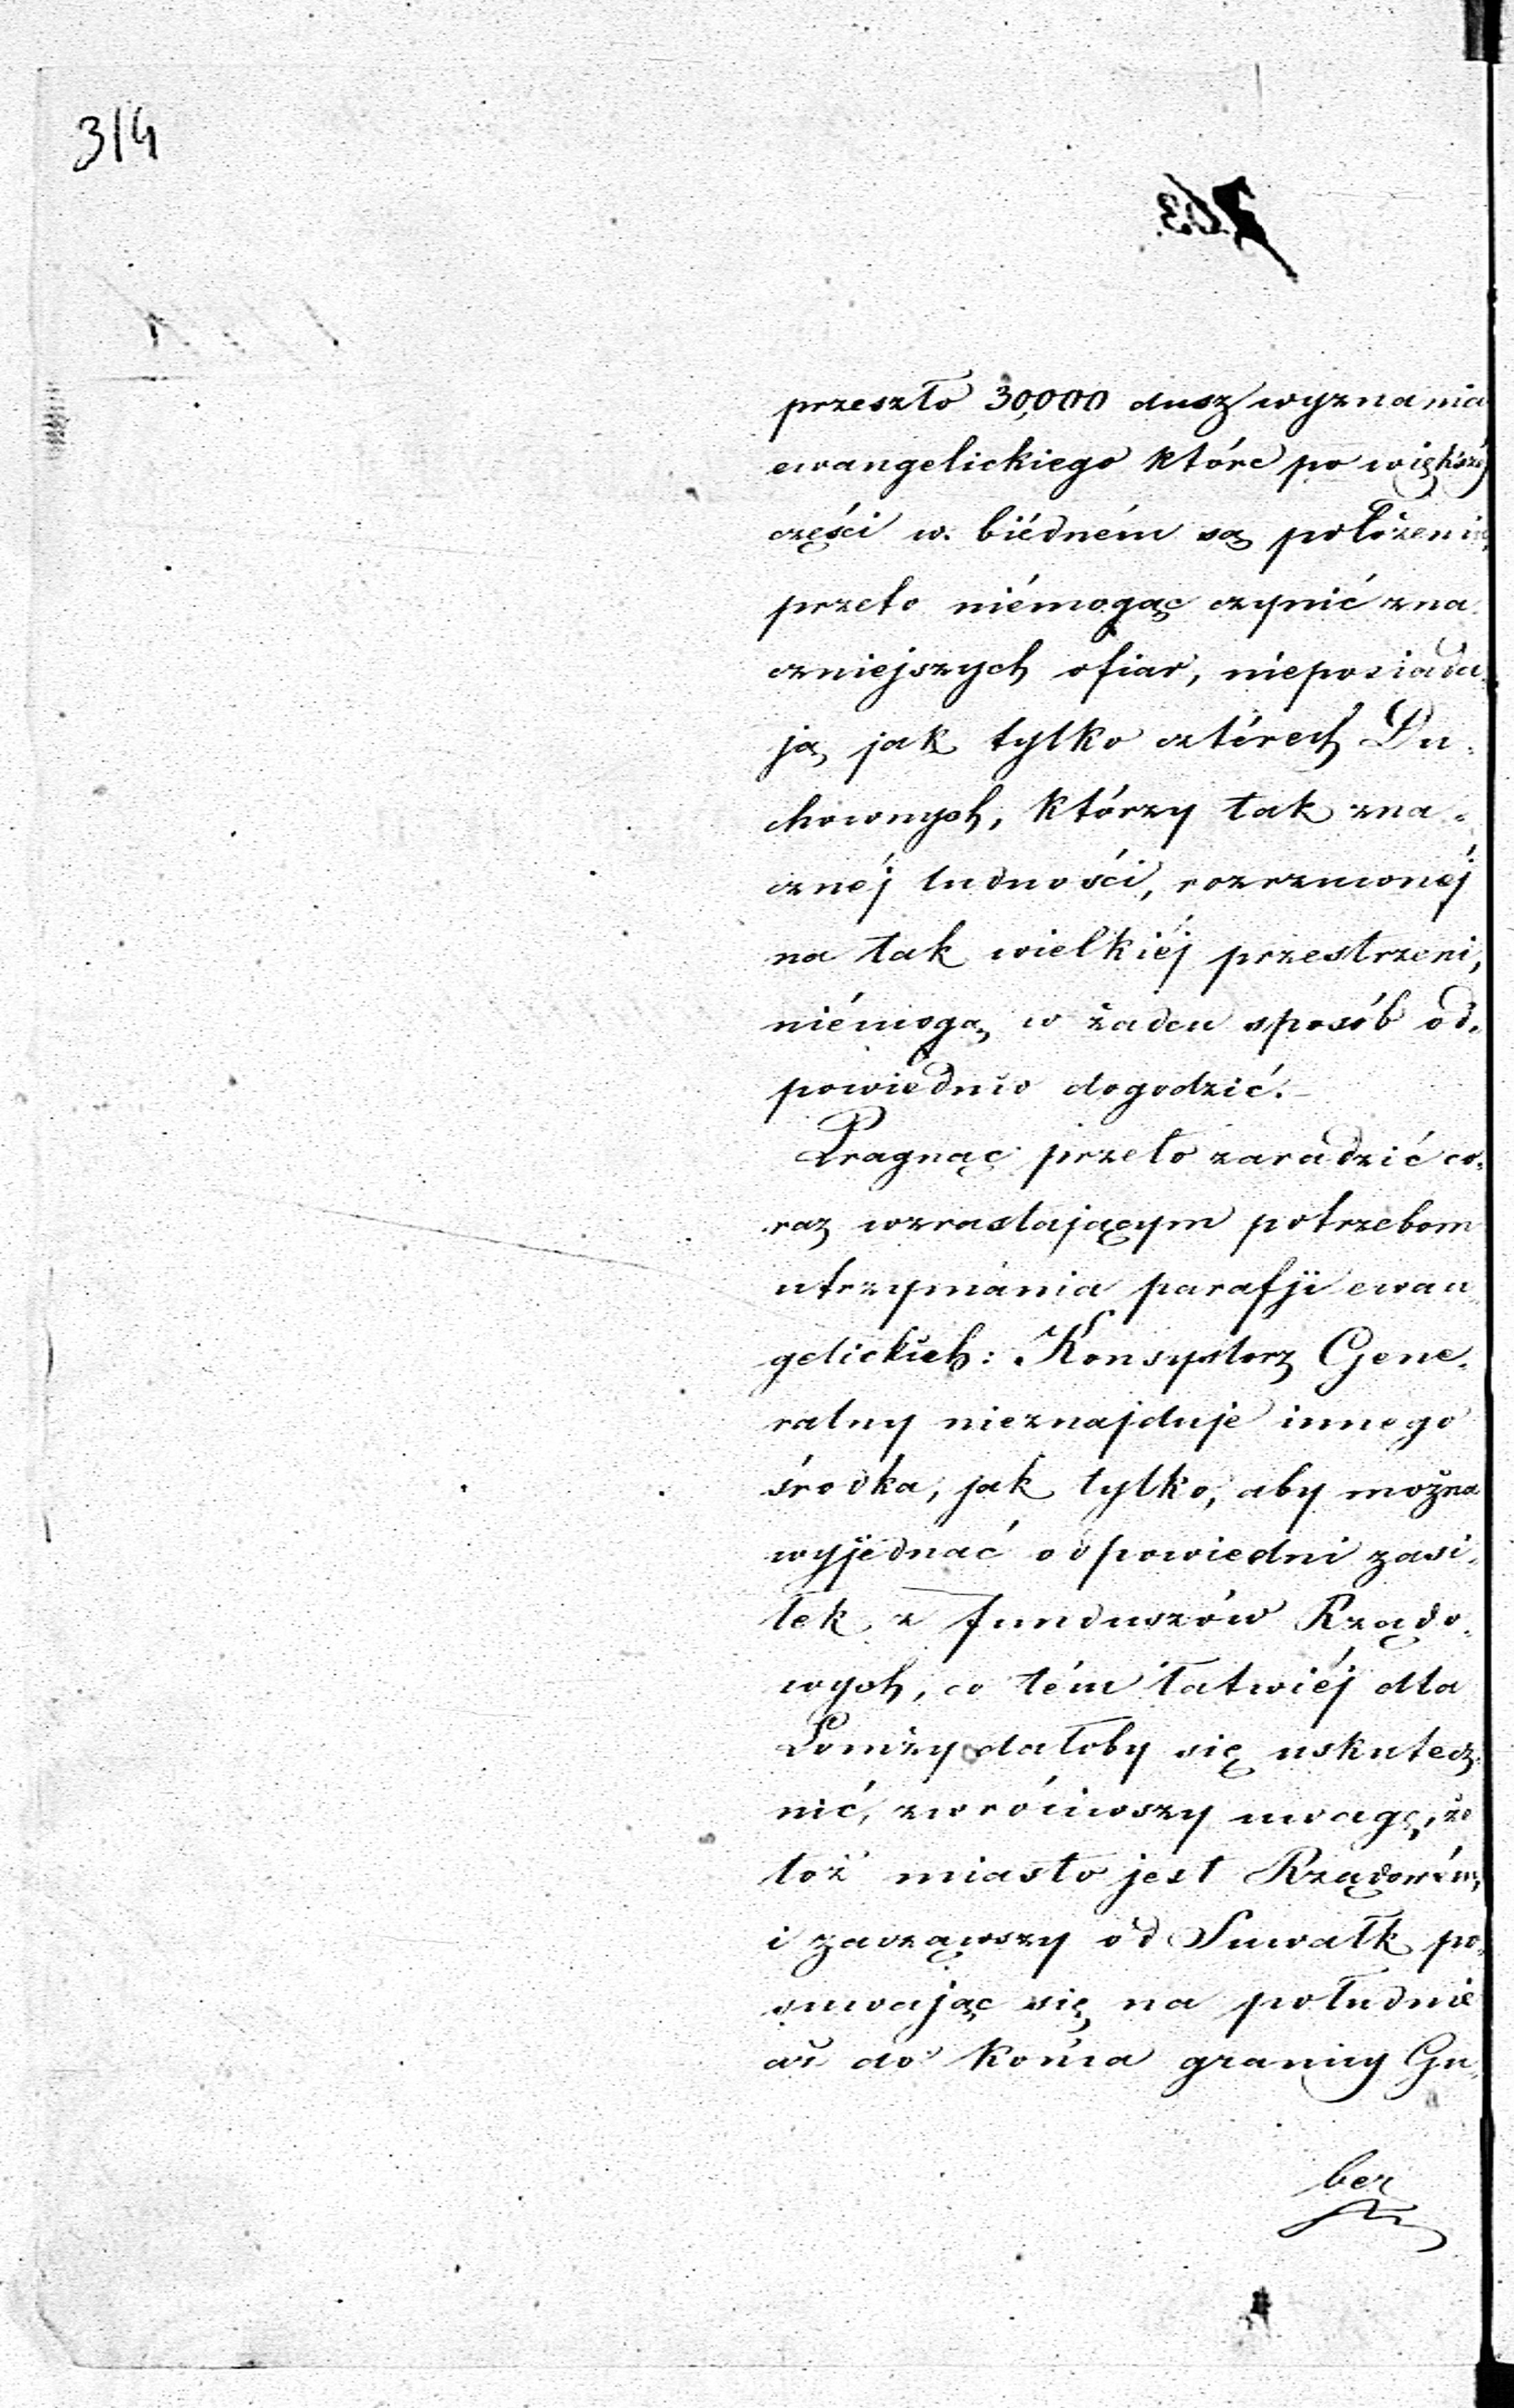 314
przeszło 30,000 dusz wyznania
ewangelickiego które po większéj
części w biédném są położeniu,
przeto niémogąc czynić zna-
czniejszych ofiar, nieposiada-
ją jak tylko cztérech Du-
chownych, którzy tak zna-
cznéj ludności, rozrzuconéj
na tak wielkiéj przestrzeni,
niémogą w żaden sposób od-
powiednio dogodzić.-
Pragnąc przeto zaradzić co-
raz wzrastającym potrzebom
utrzymania parafji ewan-
gelickich: Konsystorz Gene-
ralny nieznajduje innego
środka, jak tylko, aby można
wyjednać odpowiedni zasi-
łek z funduszów Rządo-
wych, co tém łatwiéj dla
Łomży dałoby się uskutecz-
nić, zwróciwszy uwagę, że
toż miasto jest Rządowém,
i zacząwszy od Suwałk po-
suwając się na południe
aż do końca granicy Gu-
ber